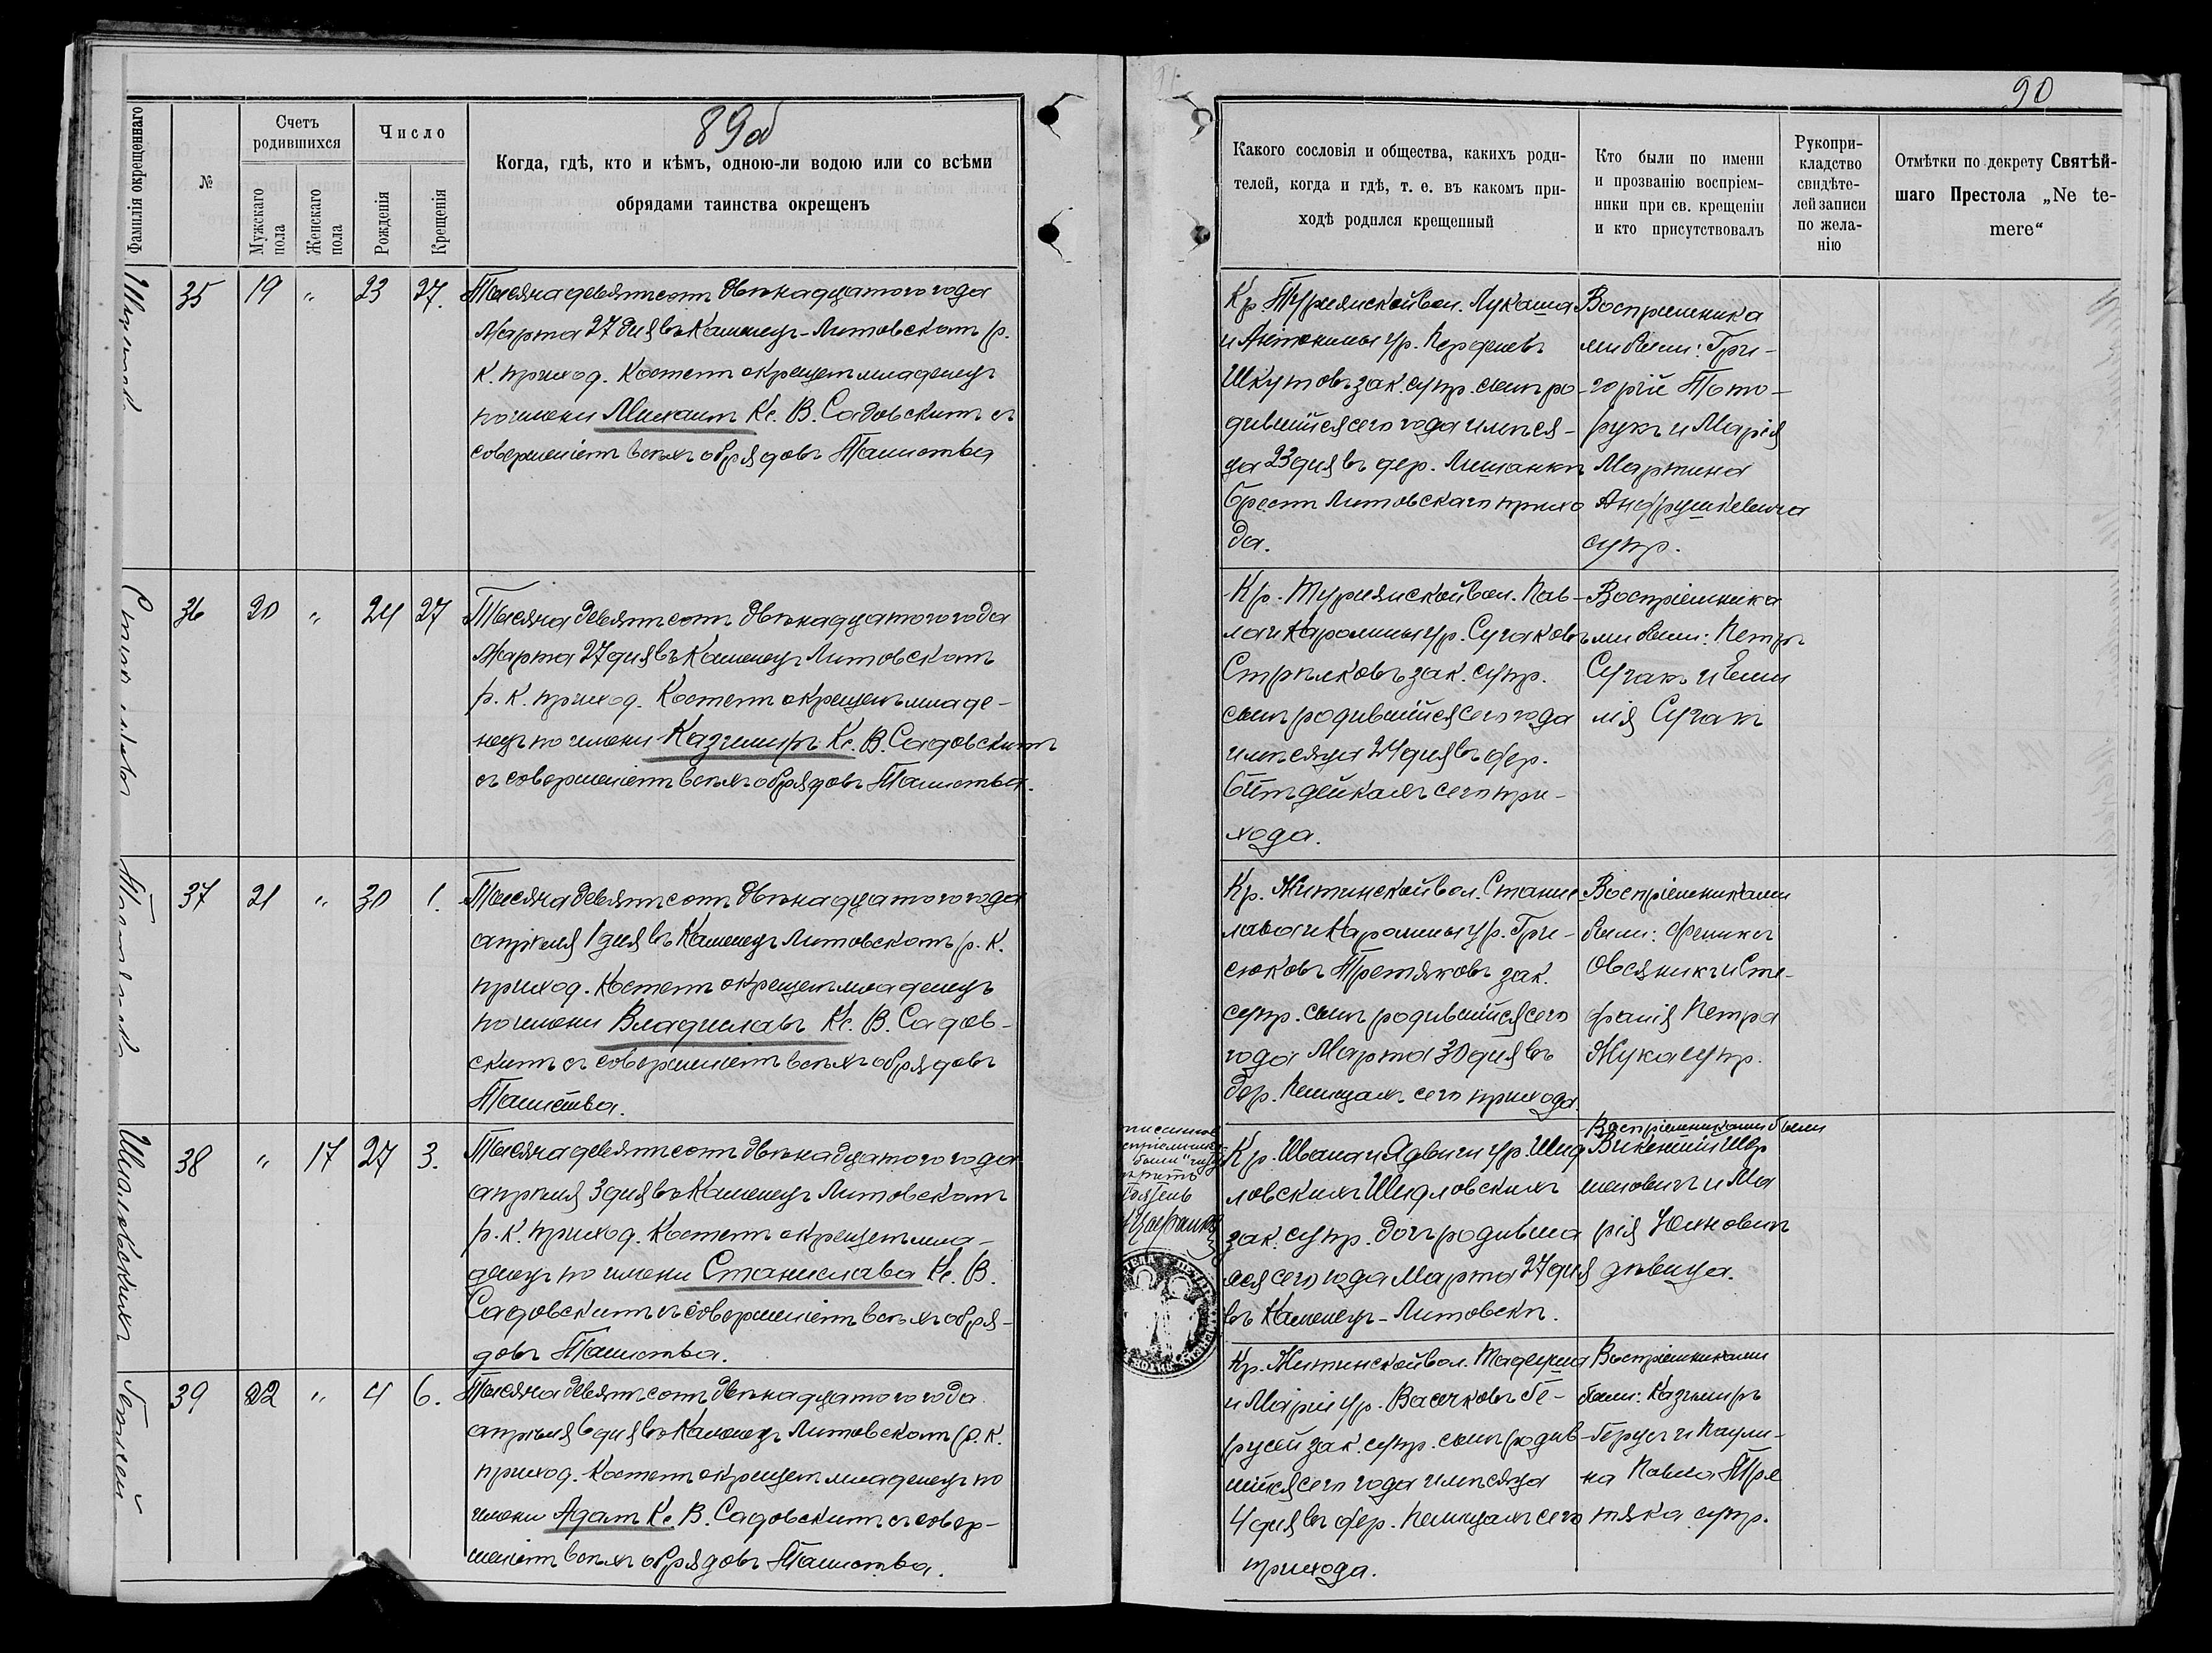 89об
Фамилія окрещеннаго
№
Счетъ родившихся
Мужскаго пола
Женскаго пола
Число
Рожденія
Крещенія
Когда, гдѣ, кто и кѣмъ, одною-ли водою или со всѣми
обрядами таинства окрещенъ
35 19 " 23 27.
Тысяча девятьсотъ двѣнадцатого года
Марта 27 дня въ Каменецъ-Литовскомъ р.
К. приход. Костелѣ окрещенъ младенецъ
по имени Михаилъ Кс. В. Садовскимъ съ
совершеніемъ всѣхъ обрядовъ Таинства
36 20 " 24 27
Тысяча девятьсотъ двѣнадцатого года
Марта 27 дня въ Каменецъ Литовскомъ
р. К. приход. Костелѣ окрещенъ младе-
нецъ по имени Казимиръ Кс. В. Садовскимъ
съ совершеніемъ всѣхъ обрядовъ Таинства.
37 21 " 30 1.
Тысяча девятьсотъ двѣнадцатого года
апрѣля 1 дня въ Каменецъ Литовскомъ р. К.
приход. Костелѣ окрещенъ младенецъ
по имени Владиславъ Кс. В. Садов-
скимъ съ совершеніемъ всѣхъ обрядовъ
Таинства.
Шидловскихъ
38 " 17 27 3.
Тысяча девятьсотъ двѣнадцатого года
апрѣля 3 дня въ Каменецъ Литовскомъ
р. К. приход. Костелѣ окрещенъ мла-
денецъ по имени Станислава Кс. В.
Садовскимъ съ совершеніемъ всѣхъ обря-
довъ Таинства.
Герусей
39 22 " 4 6.
Тысяча девятьсотъ двѣнадцатого года
апрѣля 6 дня въ Каменецъ Литовскомъ р. К.
приход. Костелѣ окрещенъ младенецъ по
имени Адамъ Кс. В. Садовскимъ съ совер-
шеніемъ всѣхъ обрядовъ Таинства.
90
Какого сословія и общества, какихъ роди-
телей, когда и гдѣ, т. е. въ какомъ при-
ходѣ родился крещенный
Кто были по имени
и прозванію воспріем-
ники при св. крещеніи
и кто присутствовалъ
Рукопри-
кладство
свидѣте-
лей записи
по жела-
нію
Отмѣтки по декрету Святѣй-
шаго Престола „Ne te-
mere“
Кр. Турнянской вол. Лукаша
и Антонины ур.
Шкутовъ зак. супр. сынъ ро-
дившійся сего года и мѣся-
ца 23 дня въ дер. Лишанкѣ
Брестъ Литовскаго прихо
да.
Воспріемника
ми были: Гри-
горій Тото-
рукъ и Марія
Мартина
Андрушкевича
супр.
Кр. Турнянской вол. Пав-
ла и Каролины ур. Сугаковъ
Стрѣлковъ зак. супр.
сынъ родившійся сего года
и мѣсяца 24 дня въ дер.
сего при-
хода.
Воспріемника
ми были: Петръ
Сугакъ и Еми
лія Сугакъ
Кр. Житинской вол. Станис
лава и Каролины ур. Гри-
сюковъ Третяковъ зак.
супр. сынъ родившійся сего
года Марта 30 дня въ
дер. Пелищахъ сего прихода.
Воспріемниками
были: Феликсъ
Овсяникъ и Сте-
фанія Петра
Жука супр.
Кр. Ивана и Ядвиги ур. Шид
ловскихъ Шидловскихъ
зак. супр. дочь родивша
яся сего года Марта 27 дня
въ Каменецъ-Литовскѣ.
Воспріемниками были
Викентій
и Ма
рія Юхновичъ
дѣвица.
Кр. Житинской вол. Тадеуша
и Маріи ур. Васючковъ Ге-
русей зак. супр. сынъ родив-
шійся сего года и мѣсяца
4 дня въ дер. Пелищахъ сего
прихода.
Воспріемниками
были: Казимиръ
Герусь и Паули-
на Павла Тре
тяка супр.